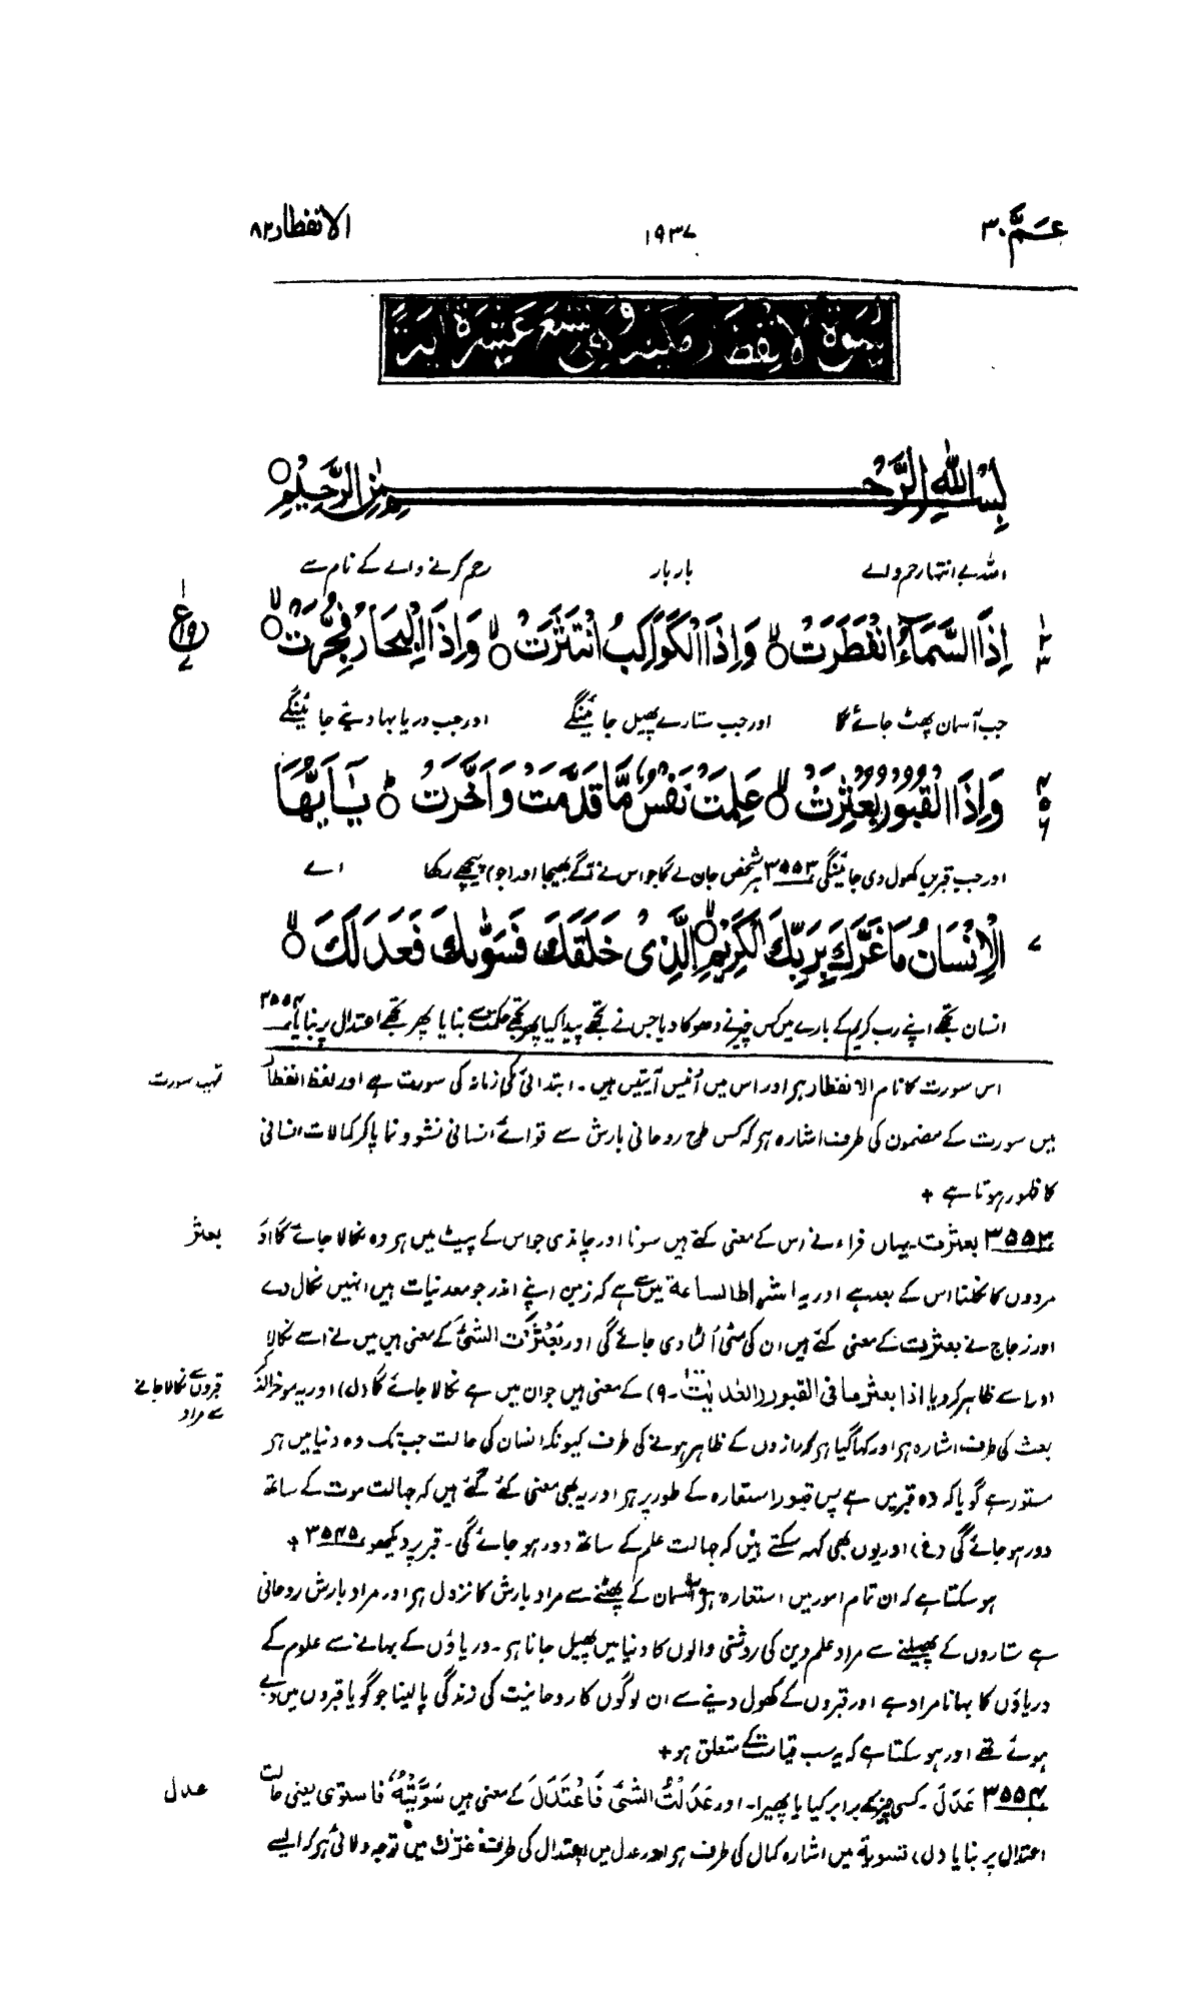 عَمَّ ٣٠ ١٩٣٧ الانفطار ٨٢
سورة الانفطار مكية وهى تسع عشرة اية
بِسْمِ اللهِ الرَّحْمٰنِ الرَّحِيْمِ
اللہ بے انتہا رحم والے بار بار رحم کرنے والے کے نام سے
اِذَا السَّمَآءُ انْفَطَرَتْ وَاِذَا الْكَوَاكِبُ انْتَثَرَتْ وَاِذَا الْبِحَارُ فُجِّرَتْ
جب آسمان پھٹ جائے گا اور جب ستارے پھیل جائینگے اور جب دریا بہا دیئے جائینگے
وَاِذَا الْقُبُوْرُ بُعْثِرَتْ عَلِمَتْ نَفْسٌ مَّا قَدَّمَتْ وَاَخَّرَتْ يٰۤاَيُّهَا
٤ ٥ ٦
اور جب قبریں کھول دی جائینگی ٣٥٥٣ ہر شخص جان لے گا جو اس نے آگے بھیجا اور (جو) پیچھے رکھا اے
الْاِنْسَانُ مَا غَرَّكَ بِرَبِّكَ الْكَرِيْمِ الَّذِىْ خَلَقَكَ فَسَوّٰىكَ فَعَدَلَكَ
٧
انسان تجھے اپنے رب کریم کے بارے میں کس چیز نے دھوکا دیا جس نے تجھے پیدا کیا پھر تجھے حکمت سے بنایا پھر تجھے اعتدال پر بنایا ٣٥٥٤
اس سورت کا نام الانفطار ہر اور اس میں اُنیس آیتیں ہیں۔ ابتدائی مکی زمانہ کی سورت ہے اور لفظ انفطار
میں سورت کے مضمون کی طرف اشارہ ہر کہ کس طرح روحانی بارش سے قوائے انسانی نشو و نما پاکر کمالات انسانی
کا ظہور ہوتا ہے +
بعثر
٣٥٥٣ بعثرت۔ یہاں فراء نے اس کے معنی کئے ہیں سونا اور چاندی جو اس کے پیٹ میں ہر وہ نکالا جائے گا اور
مردوں کا نکلنا اس کے بعد ہے اور یہ اشراط الساعة میں سے ہے کہ زمین اپنے اندر جو معدنیات ہیں انہیں نکال دے
اور زجاج نے بعثرت کے معنی کئے ہیں ان کی مٹی اُلٹا دی جائے گی اور بَعْثَرْتُ الشئَ کے معنی ہیں میں نے اسے نکالا
قبروں سے نکالا جانے سے مراد
اور اسے ظاہر کر دیا اذا بعثر ما فى القبور (العٰديٰت۔٩) کے معنی ہیں جو ان میں ہے نکالا جائے گا (ل) اور یہ موخرالذکر
بعث کی طرف اشارہ ہر اور کہا گیا ہر کہ رازوں کے ظاہر ہونے کی طرف کیونکہ انسان کی حالت جب تک وہ دنیا میں ہر
مستور ہے گویا کہ وہ قبر میں ہے پس قبور استعارہ کے طور پر ہر اور یہ بھی معنی کئے گئے ہیں کہ جہالت موت کے ساتھ
دور ہو جائے گی (غ) اور یوں بھی کہہ سکتے ہیں کہ جہالت علم کے ساتھ دور ہو جائے گی۔ قبر پر دیکھو ٣٥٤٥ +
ہو سکتا ہے کہ ان تمام امور میں استعارہ ہو آسمان کے پھٹنے سے مراد بارش کا نزول ہر اور مراد بارش روحانی
ہے ستاروں کے پھیلنے سے مراد علم دین کی روشنی والوں کا دنیا میں پھیل جانا ہر۔ دریاؤں کے بہانے سے علوم کے
دریاؤں کا بہانا مراد ہے اور قبروں کے کھول دینے سے ان لوگوں کا روحانیت کی زندگی پالینا جو گویا قبروں میں دبے
ہوئے تھے اور ہو سکتا ہے کہ یہ سب قیامت کے متعلق ہو +
عدل
٣٥٥٤ عَدَلَ۔ کسی چیز کے برابر کیا یا پھیرا۔ اور عَدَلْتُ الشئَ فَاعْتَدَلَ کے معنی ہیں سَوَّيْتُهٗ فاستوى یعنی حالت
اعتدال پر بنایا (ل) تسویة میں اشارہ کمال کی طرف ہر اور عدل میں اعتدال کی طرف غرّک میں توجہ دلائی ہر کہ ایسے